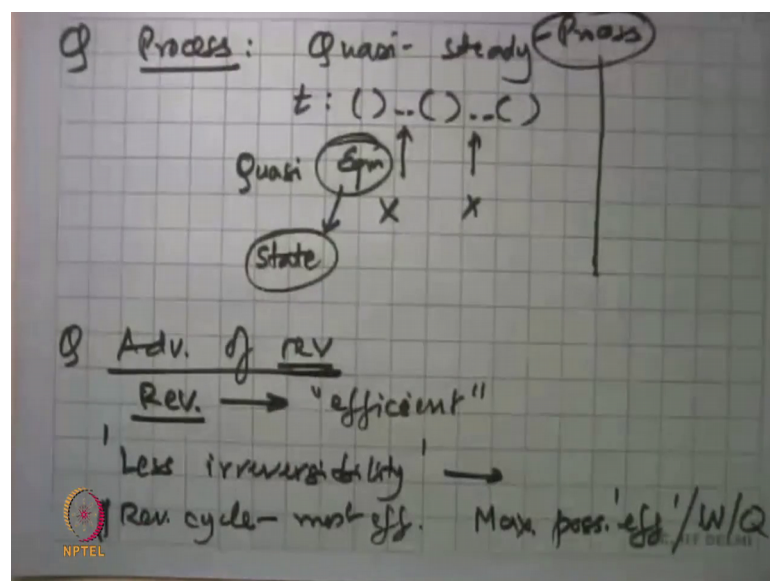 Q Process: Quasi-steady-Process
t: ()..()..()
Quasi Eqm
X X
State
Q Adv. of rev
Rev. → "efficient"
'Less irreversibility' →
Rev. cycle - most eff. Max. poss. 'eff'/W/Q
NPTEL
IIT DELHI